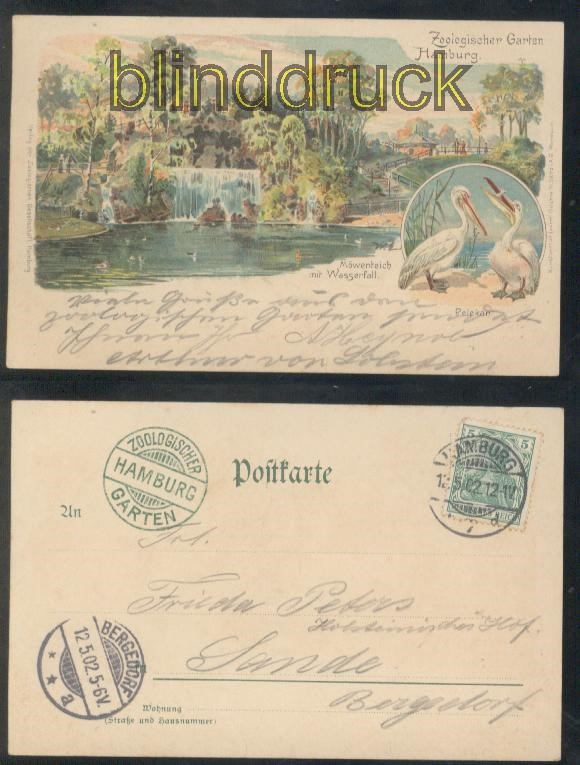 blinddruck
Zoologischer Garten
Hamburg.
Möwenteich
mit Wasserfall.
Pelekan
Viele Grüße aus den
zoologischen Garten sendet
Ihnen Ihr
Arthur von
ZOOLOGISCHER
HAMBURG
GARTEN
Postkarte
5 5
HAMBURG
12.5.02.12-1V.
An
Frl.
Frieda Peters
Holsteinisches Hof.
Sande
Bergedorf
BERGEDORF
12.5.02.5-6V.
a
Wohnung
(Straße und Hausnummer)